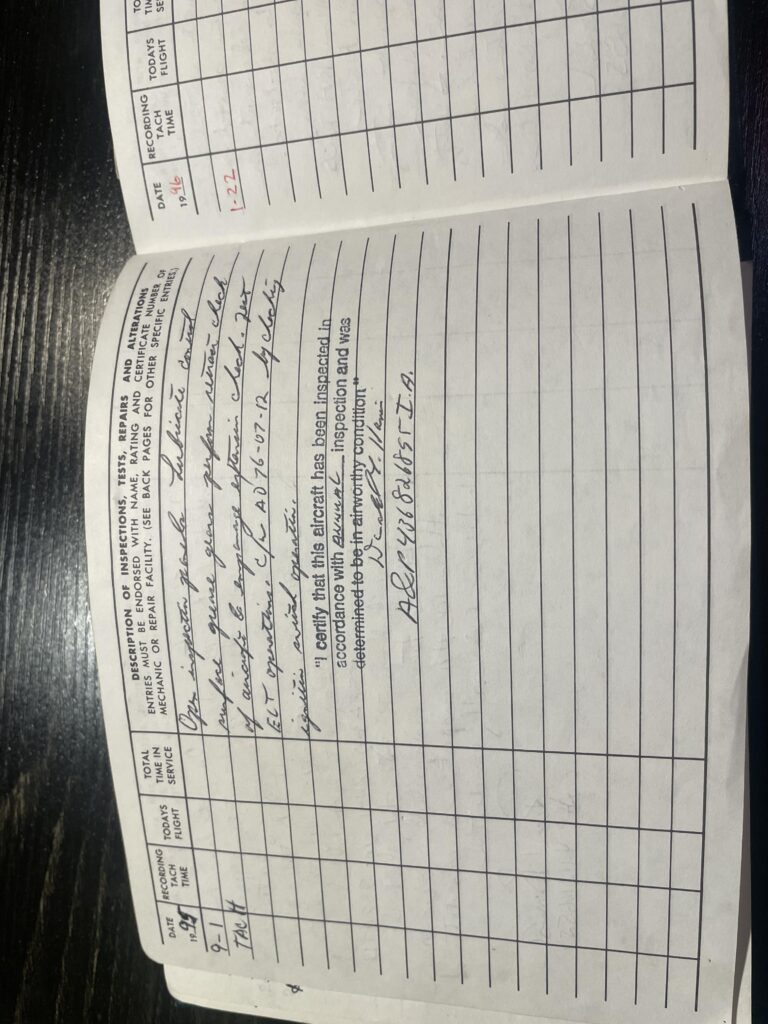 DATE
19 95
RECORDING TACH TIME
TODAYS FLIGHT
TOTAL TIME IN SERVICE
DESCRIPTION OF INSPECTIONS, TESTS, REPAIRS AND ALTERATIONS
ENTRIES MUST BE ENDORSED WITH NAME, RATING AND CERTIFICATE NUMBER OF
MECHANIC OR REPAIR FACILITY. (SEE BACK PAGES FOR OTHER SPECIFIC ENTRIES.)
Open inspection panels Lubricate control
9-1 surface grease gears perform retract check
TACH of aircraft & emergency extension check. Test
ELT operations. C/W AD 76-07-12 by checking
ignition switch operation.
"I certify that this aircraft has been inspected in
accordance with ANNUAL inspection and was
determined to be in airworthy condition"
A&P 436826855 I.A.
DATE
19 96
RECORDING TACH TIME
TODAYS FLIGHT
1-22